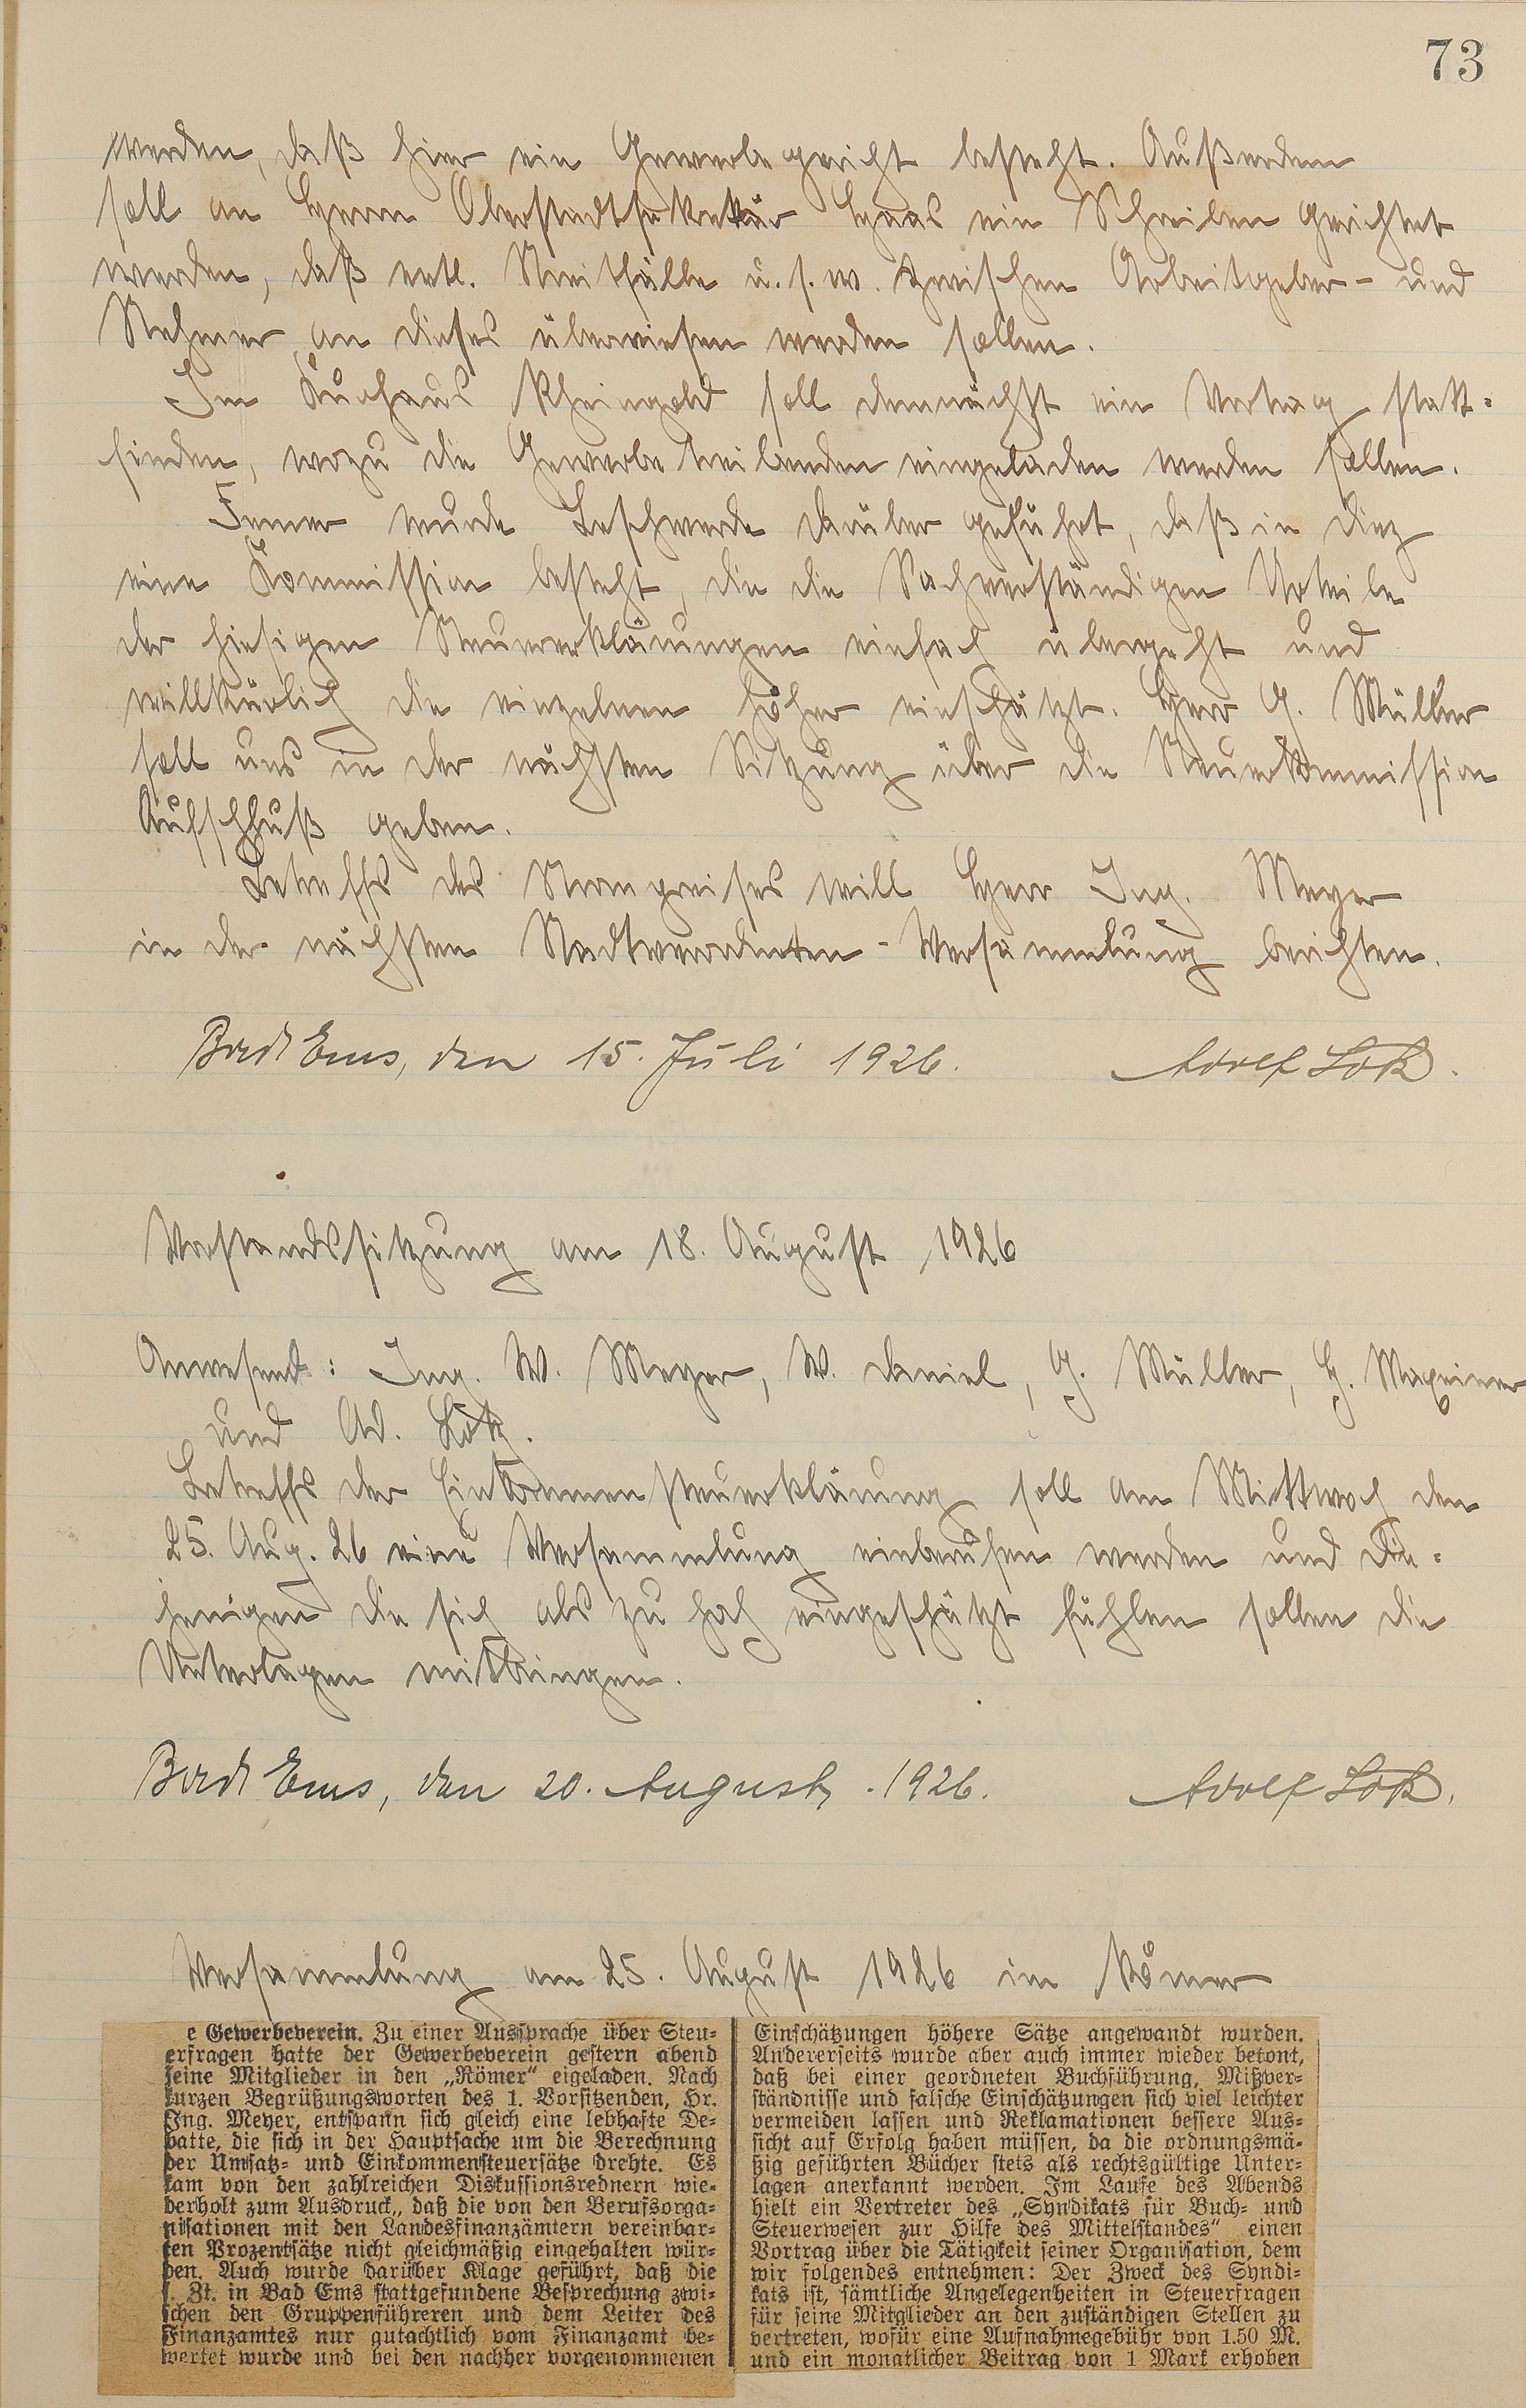 73
werden, daß hier ein Gewerbegericht besteht. Außerdem
soll an Herrn Oberstadtsekretär Haas ein Schreiben gerichtet
werden, daß evtl. Streitfälle u. s. w. zwischen Arbeitgeber- und
Nehmer an dieses überwiesen werden sollen.
Im Kurhaus Rheingold soll demnächst ein Vortrag statt-
finden, wozu die Gewerbetreibenden eingeladen werden sollen.
Ferner wurde Beschwerde darüber geführt, daß in Diez
eine Kommission besteht, die die Sachverständigen Urteile
der hiesigen Steuererklärungen einfach übergeht und
willkürlich die einzelnen höher einschätzt. Herr G. Müller
soll uns in der nächsten Sitzung über die Steuerkommission
Aufschluß geben.
Betreffs des Strompreises will Herr Ing. Meyer
in der nächsten Stadtverordneten-Versammlung berichten.
Bad Ems, den 15. Juli 1926. Adolf Lotz.
Vorstandssitzung am 18. August 1926
Anwesend: Ing. W. Meyer, W. Daniel, G. Müller, H. Maxeiner
und Ad. Lotz.
Betreffs der Einkommensteuererklärung soll am Mittwoch den
25. Aug. 26 eine Versammlung einberufen werden und die-
jenigen die sich als zu hoch eingeschätzt fühlen sollen die
Unterlagen mitbringen.
Bad Ems, den 20. August. 1926. Adolf Lotz.
Versammlung am 25. August 1926 im Römer
e Gewerbeverein. Zu einer Aussprache über Steu-
erfragen hatte der Gewerbeverein gestern abend
seine Mitglieder in den „Römer“ eigeladen. Nach
kurzen Begrüßungsworten des 1. Vorsitzenden, Hr.
Ing. Meyer, entspann sich gleich eine lebhafte De-
batte, die sich in der Hauptsache um die Berechnung
der Umsatz- und Einkommensteuersätze drehte. Es
kam von den zahlreichen Diskussionsrednern wie-
derholt zum Ausdruck, daß die von den Berufsorga-
nisationen mit den Landesfinanzämtern vereinbar-
ten Prozentsätze nicht gleichmäßig eingehalten wür-
den. Auch wurde darüber Klage geführt, daß die
s. Zt. in Bad Ems stattgefundene Besprechung zwi-
schen den Gruppenführeren und dem Leiter des
Finanzamtes nur gutachtlich vom Finanzamt be-
wertet wurde und bei den nachher vorgenommenen
Einschätzungen höhere Sätze angewandt wurden.
Andererseits wurde aber auch immer wieder betont,
daß bei einer geordneten Buchführung, Mißver-
ständnisse und falsche Einschätzungen sich viel leichter
vermeiden lassen und Reklamationen bessere Aus-
sicht auf Erfolg haben müssen, da die ordnungsmä-
ßig geführten Bücher stets als rechtsgültige Unter-
lagen anerkannt werden. Im Laufe des Abends
hielt ein Vertreter des „Syndikats für Buch- und
Steuerwesen zur Hilfe des Mittelstandes“ einen
Vortrag über die Tätigkeit seiner Organisation, dem
wir folgendes entnehmen: Der Zweck des Syndi-
kats ist, sämtliche Angelegenheiten in Steuerfragen
für seine Mitglieder an den zuständigen Stellen zu
vertreten, wofür eine Aufnahmegebühr von 1.50 M.
und ein monatlicher Beitrag von 1 Mark erhoben